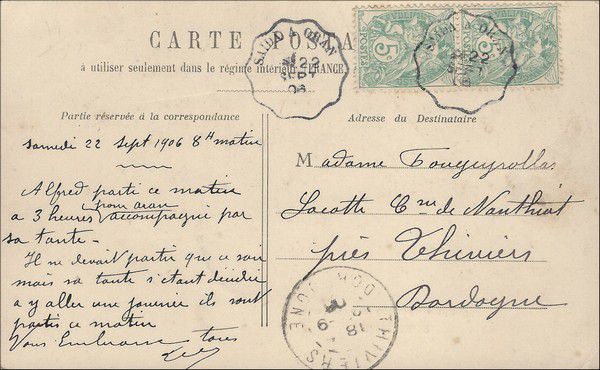 CARTE POSTA
à utiliser seulement dans le régime intérieur FRANCE,
SAIDA A ORAN
22
SEPT
06
SAIDA A ORAN
22
5c
5c
POSTES
Partie réservée à la correspondance
Adresse du Destinataire
Samedi 22 Sept 1906 8H matin
Alfred parti ce matin
a 3 heures pour oran accompagné par
sa tante -
Il ne devait partir que ce soir
mais sa tante s'étant décidée
a y aller une journée ils sont
partis ce matin
Vous Embrasse tous
Madame Fougeyrollas
Lacotte Cne de Nanthiat
près Thiviers
Dordogne
THIVIERS
DORDOGNE